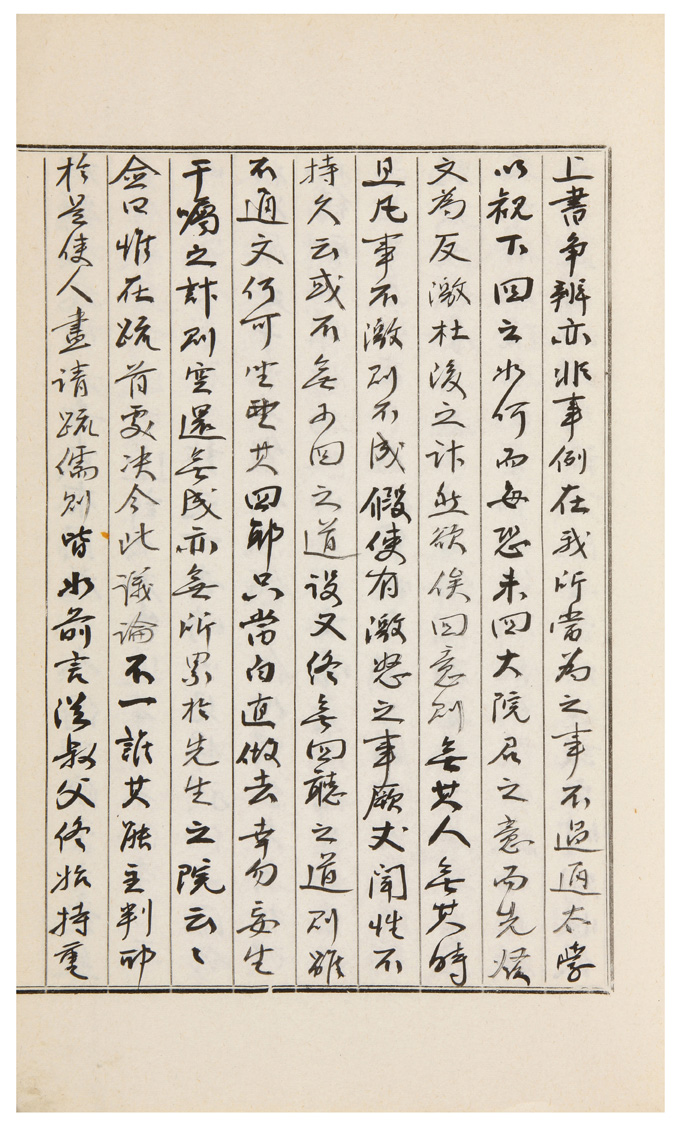 上書爭辨亦非事例在我所當為之事不過通太學
以視下回之如何而每恐未回大院君之意而先發
文為反激杜後之計然欲俟回意則無其人無其時
且凡事不激則不成假使有激怒之事厥丈聞性不
持久云或不無可回之道設又終無回聽之道則雖
不通文何可坐望其回耶只當向直做去幸勿妄生
干囑之計則空還無成亦無所累於先生之院云〻
僉曰惟在疏首處決今此議論不一誰其能主判耶
於是使人盡請疏儒則皆如前言從叔父終始持重